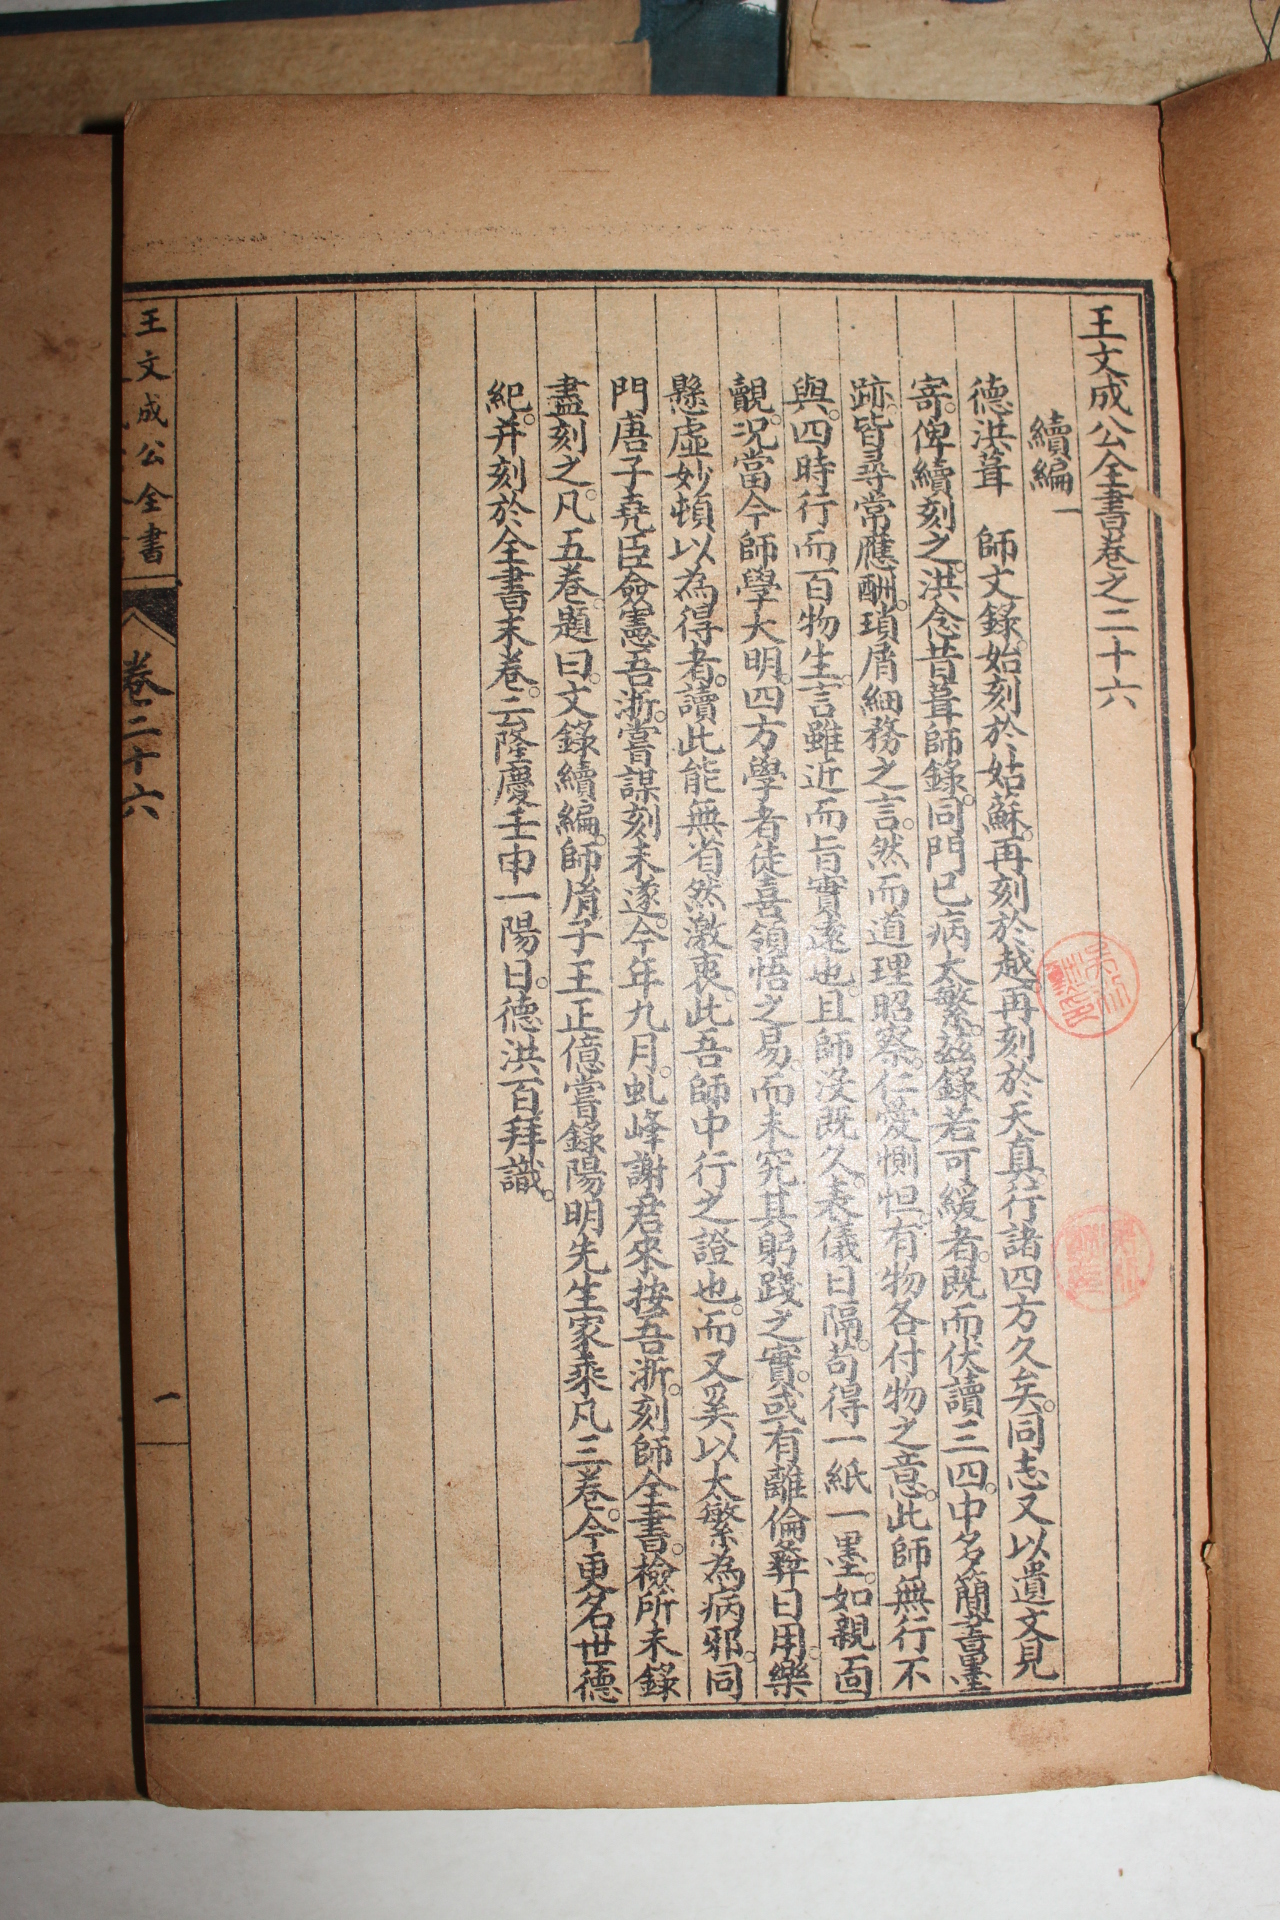 王文成公全書卷之二十六
續編一
德洪葺 師文錄。始刻於姑蘇。再刻於越。再刻於天真。行諸四方久矣。同志又以遺文見
寄。俾續刻之。洪念昔葺師錄。同門已病太繁。茲錄若可緩者。既而伏讀三四。中多簡書墨
跡。皆尋常應酬。瑣屑細務之言。然而道理昭察。仁愛惻怛。有物各付物之意。此師無行不
與。四時行而百物生。言雖近而旨實遠也。且師沒既久。表儀日隔。苟得一紙一墨。如親面
覿。況當今師學大明。四方學者徒喜領悟之易。而未究其躬踐之實。或有離倫彝日用。樂
懸虛妙頓以為得者。讀此能無省然激衷。此吾師中行之證也。而又奚以太繁為病邪。同
門唐子堯臣僉憲吾浙。嘗謀刻未遂。今年九月。虬峰謝君來按吾浙。刻師全書。檢所未錄
盡刻之。凡五卷。題曰。文錄續編。師胤子王正億嘗錄陽明先生家乘凡三卷。今更名世德
紀。并刻於全書末卷。云隆慶壬申一陽日。德洪百拜識。
王文成公全書
卷二十六
一